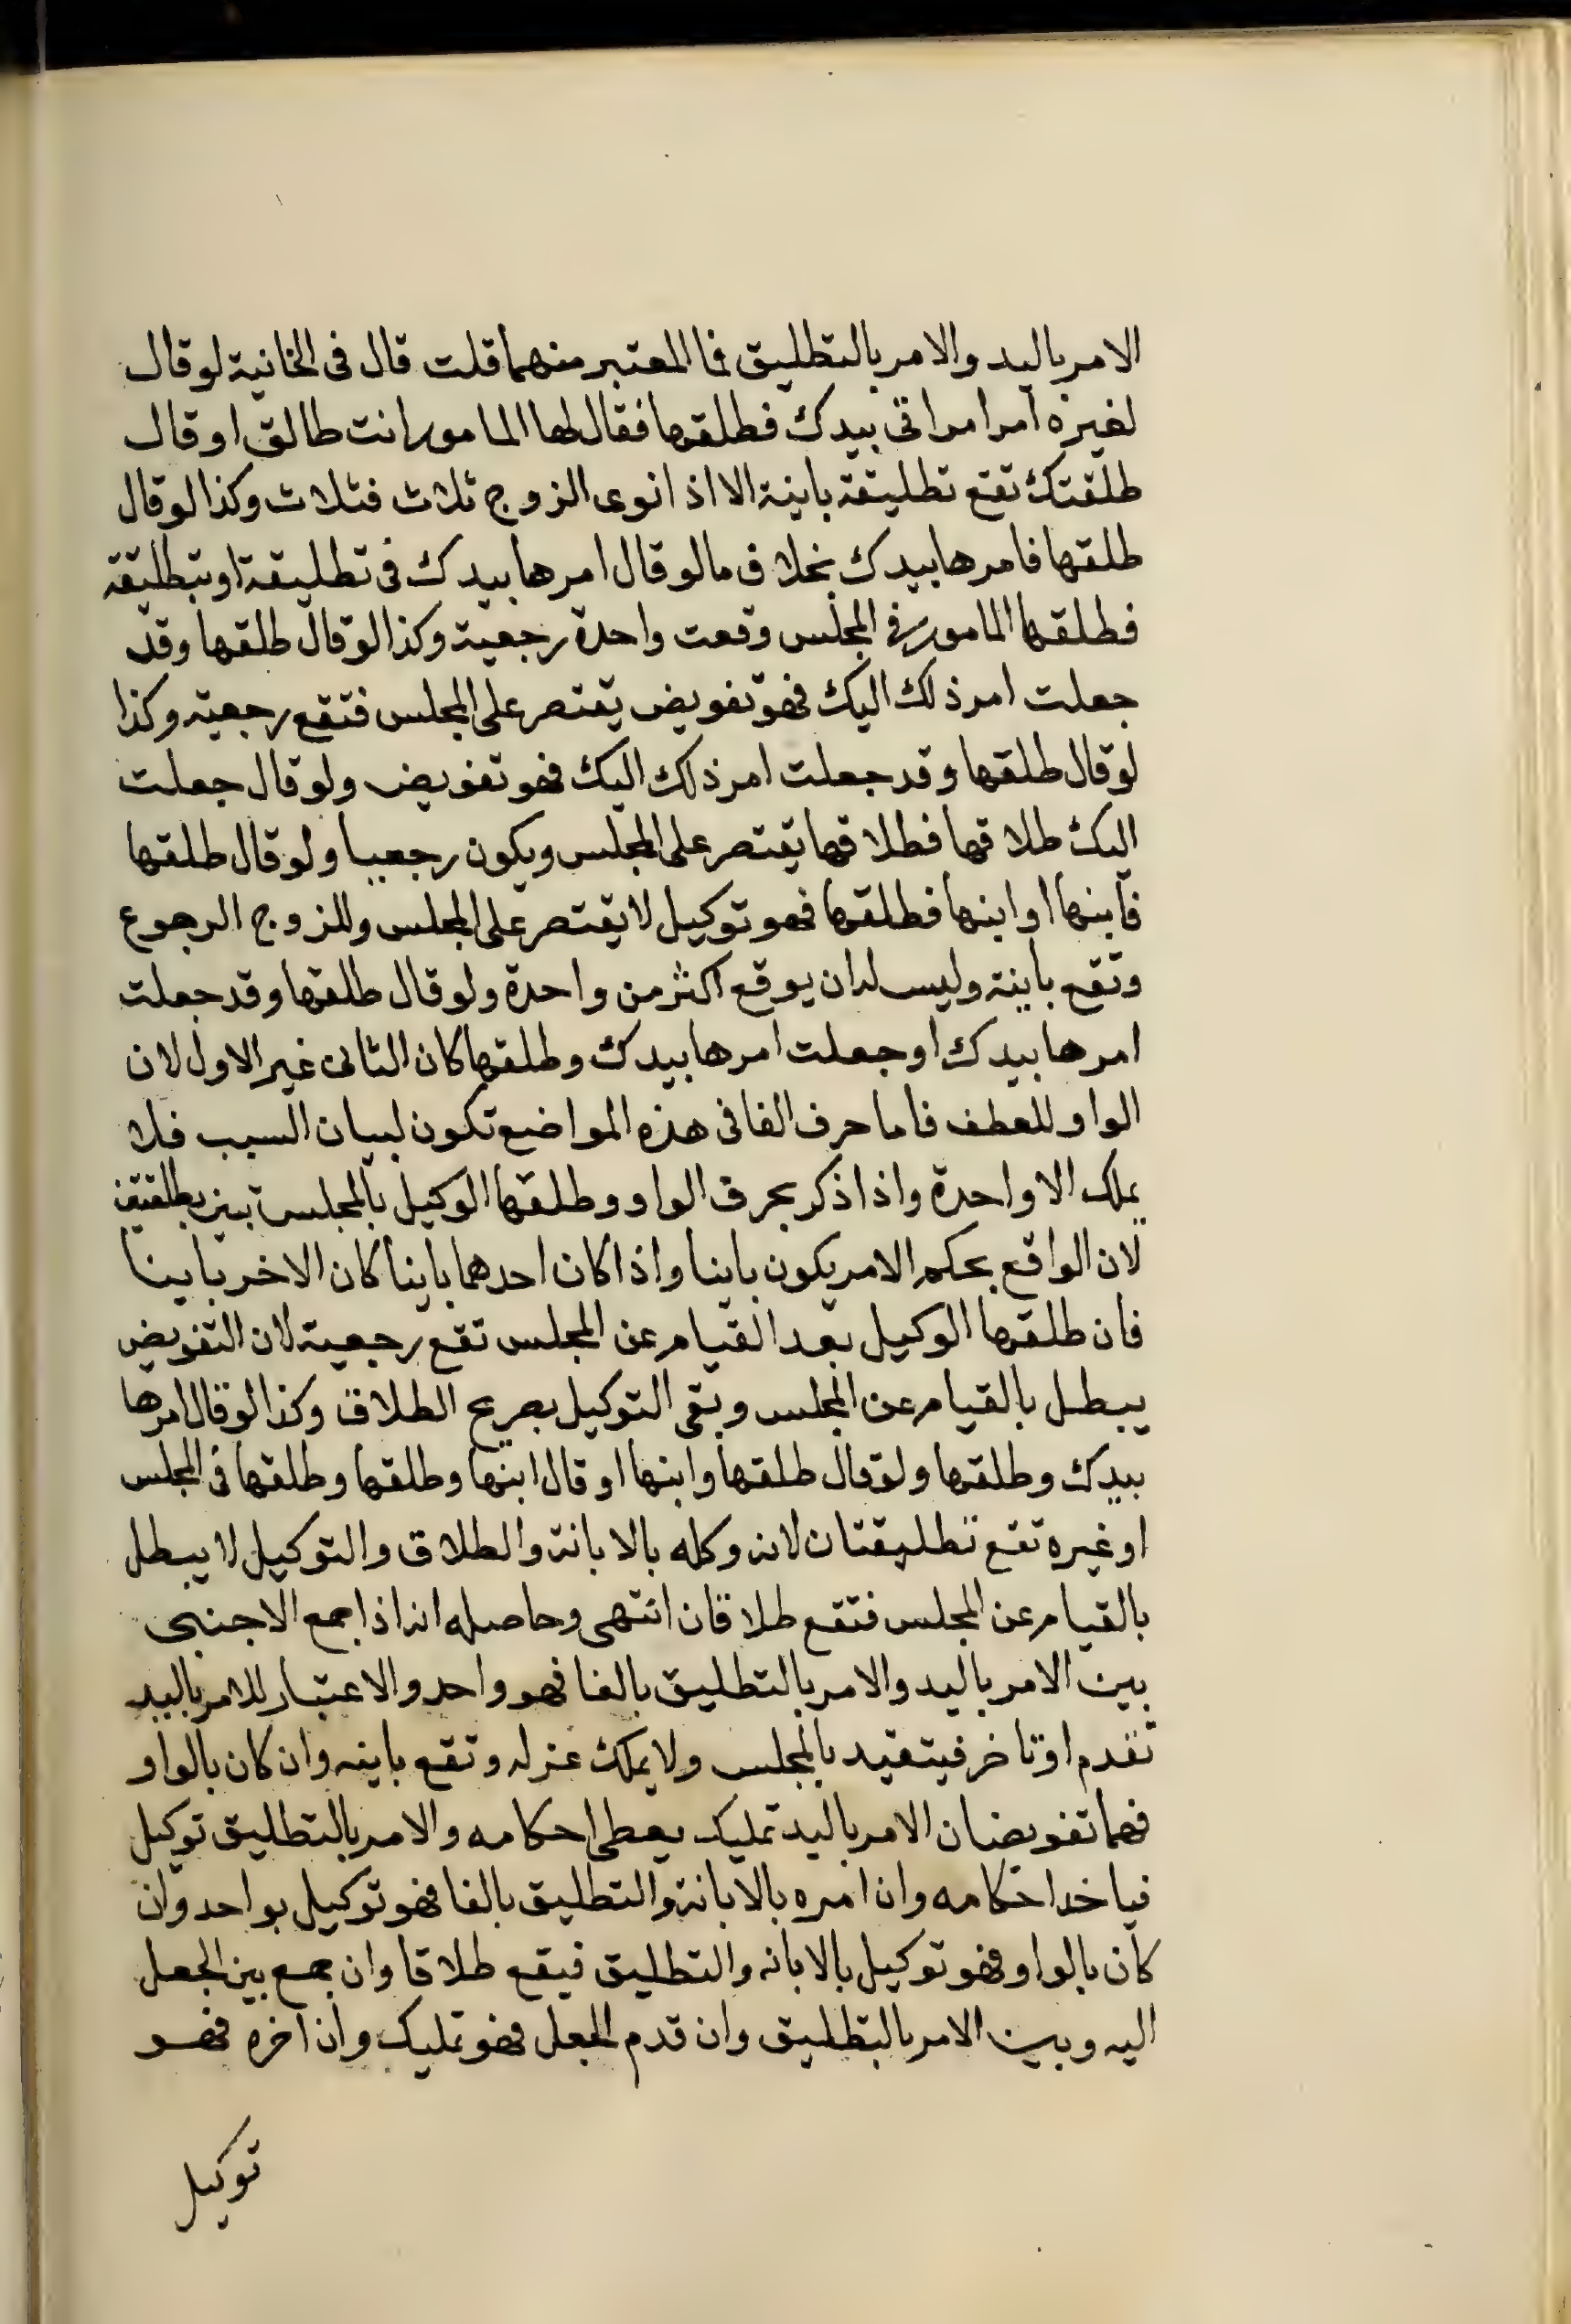 الامر باليد والامر بالتطليق فما المعتبر منهما قلت قال فى الخانية لو قال
لغيره امر امراتى بيدك فطلقها فقال لها المامور انت طالق او قال
طلقتك تقع تطليقة باينة الا اذا نوى الزوج ثلاث فثلاث وكذا لو قال
طلقها فامرها بيدك بخلاف ما لو قال امرها بيدك فى تطليقة او بتطليقة
فطلقها المامور فى المجلس وقعت واحدة رجعية وكذا لو قال طلقها وقد
جعلت امر ذلك اليك فهو تفويض يقتصر على المجلس فتقع رجعية وكذا
لو قال طلقها وقد جعلت امر ذلك اليك فهو تفويض ولو قال جعلت
اليك طلاقها فطلاقها يقتصر على المجلس ويكون رجعيا ولو قال طلقها
فابنها او ابنها فطلقها فهو توكيل لا يقتصر على المجلس وللزوج الرجوع
وتقع باينة وليس له ان يوقع اكثر من واحدة ولو قال طلقها وقد جعلت
امرها بيدك او جعلت امرها بيدك وطلقها كان الثانى غير الاول لان
الواو للعطف فاما حرف الفا فى هذه المواضع تكون لبيان السبب فلا
يملك الا واحدة واذا ذكر بحرف الواو وطلقها الوكيل بالمجلس تبين بطلقتين
لان الواقع بحكم الامر يكون باينا واذا كان احدهما باينا كان الاخر باينا
فان طلقها الوكيل بعد القيام عن المجلس تقع رجعية لان التفويض
يبطل بالقيام عن المجلس وبقى التوكيل بصريح الطلاق وكذا لو قال امرها
بيدك وطلقها ولو قال طلقها وابنها او قال ابنها وطلقها وطلقها فى المجلس
او غيره تقع تطليقتان لانه وكله بالابانة والطلاق والتوكيل لا يبطل
بالقيام عن المجلس فتقع طلاقان انتهى وحاصله انه اذا جمع الاجنبى
بين الامر باليد والامر بالتطليق بالفا فهو واحد والاعتبار للامر باليد
تقدم او تاخر فيتقيد بالمجلس ولا يملك عزله وتقع باينه وان كان بالواو
فهما تفويضان الامر باليد تمليك يعطى احكامه والامر بالتطليق توكيل
فياخد احكامه وان امره بالابانة والتطليق بالفا فهو توكيل بواحد وان
كان بالواو فهو توكيل بالابانه والتطليق فيقع طلاقا وان جمع بين الجعل
اليه وبين الامر بالتطليق وان قدم الجعل فهو تمليك وان اخره فهو
توكيل